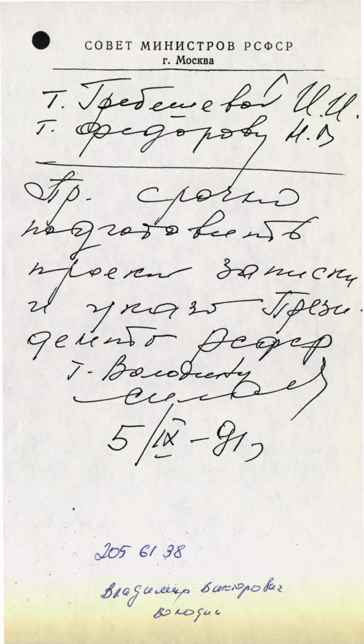 СОВЕТ МИНИСТРОВ РСФСР
г. Москва
т. Гребешевой И.И.
т. Федорову Н.В
Пр. срочно
подготовить
проект записки
и указа Прези-
дента РСФСР
т. Володину
5/IX-91,
205 61 38
Владимир Викторович
Володин